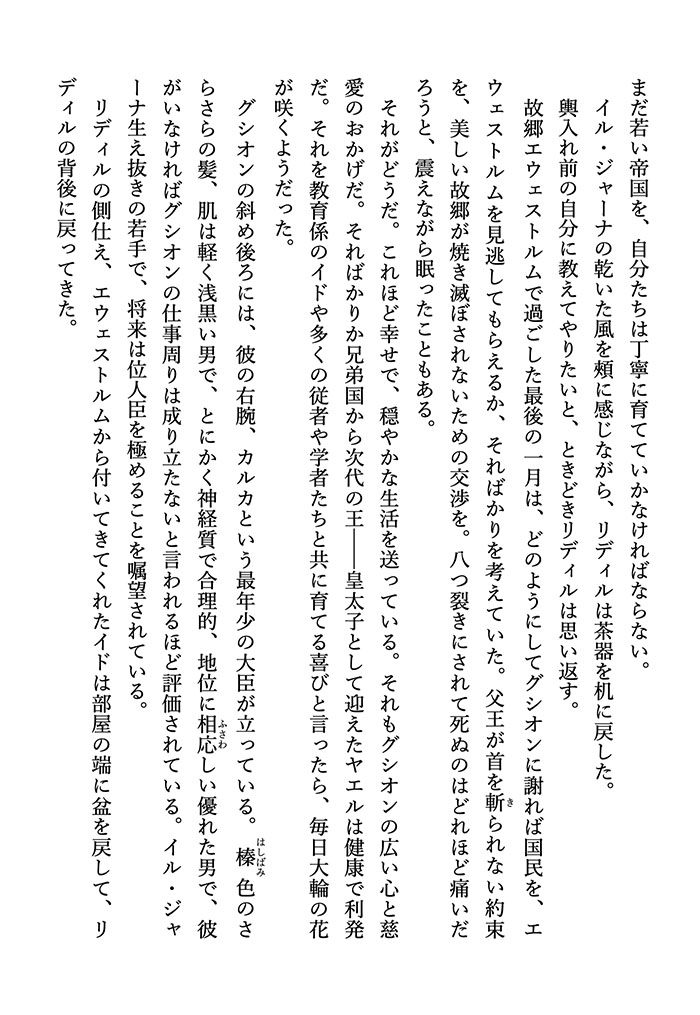 まだ若い帝国を、自分たちは丁寧に育てていかなければならない。
イル・ジャーナの乾いた風を頰に感じながら、リディルは茶器を机に戻した。
輿入れ前の自分に教えてやりたいと、ときどきリディルは思い返す。
故郷エウェストルムで過ごした最後の一月は、どのようにしてグシオンに謝れば国民を、エ
ウェストルムを見逃してもらえるか、そればかりを考えていた。父王が首を斬られない約束
を、美しい故郷が焼き滅ぼされないための交渉を。八つ裂きにされて死ぬのはどれほど痛いだ
ろうと、震えながら眠ったこともある。
それがどうだ。これほど幸せで、穏やかな生活を送っている。それもグシオンの広い心と慈
愛のおかげだ。そればかりか兄弟国から次代の王――皇太子として迎えたヤエルは健康で利発
だ。それを教育係のイドや多くの従者や学者たちと共に育てる喜びと言ったら、毎日大輪の花
が咲くようだった。
グシオンの斜め後ろには、彼の右腕、カルカという最年少の大臣が立っている。榛色のさ
らさらの髪、肌は軽く浅黒い男で、とにかく神経質で合理的、地位に相応しい優れた男で、彼
がいなければグシオンの仕事周りは成り立たないと言われるほど評価されている。イル・ジャ
ーナ生え抜きの若手で、将来は位人臣を極めることを嘱望されている。
リディルの側仕え、エウェストルムから付いてきてくれたイドは部屋の端に盆を戻して、リ
ディルの背後に戻ってきた。